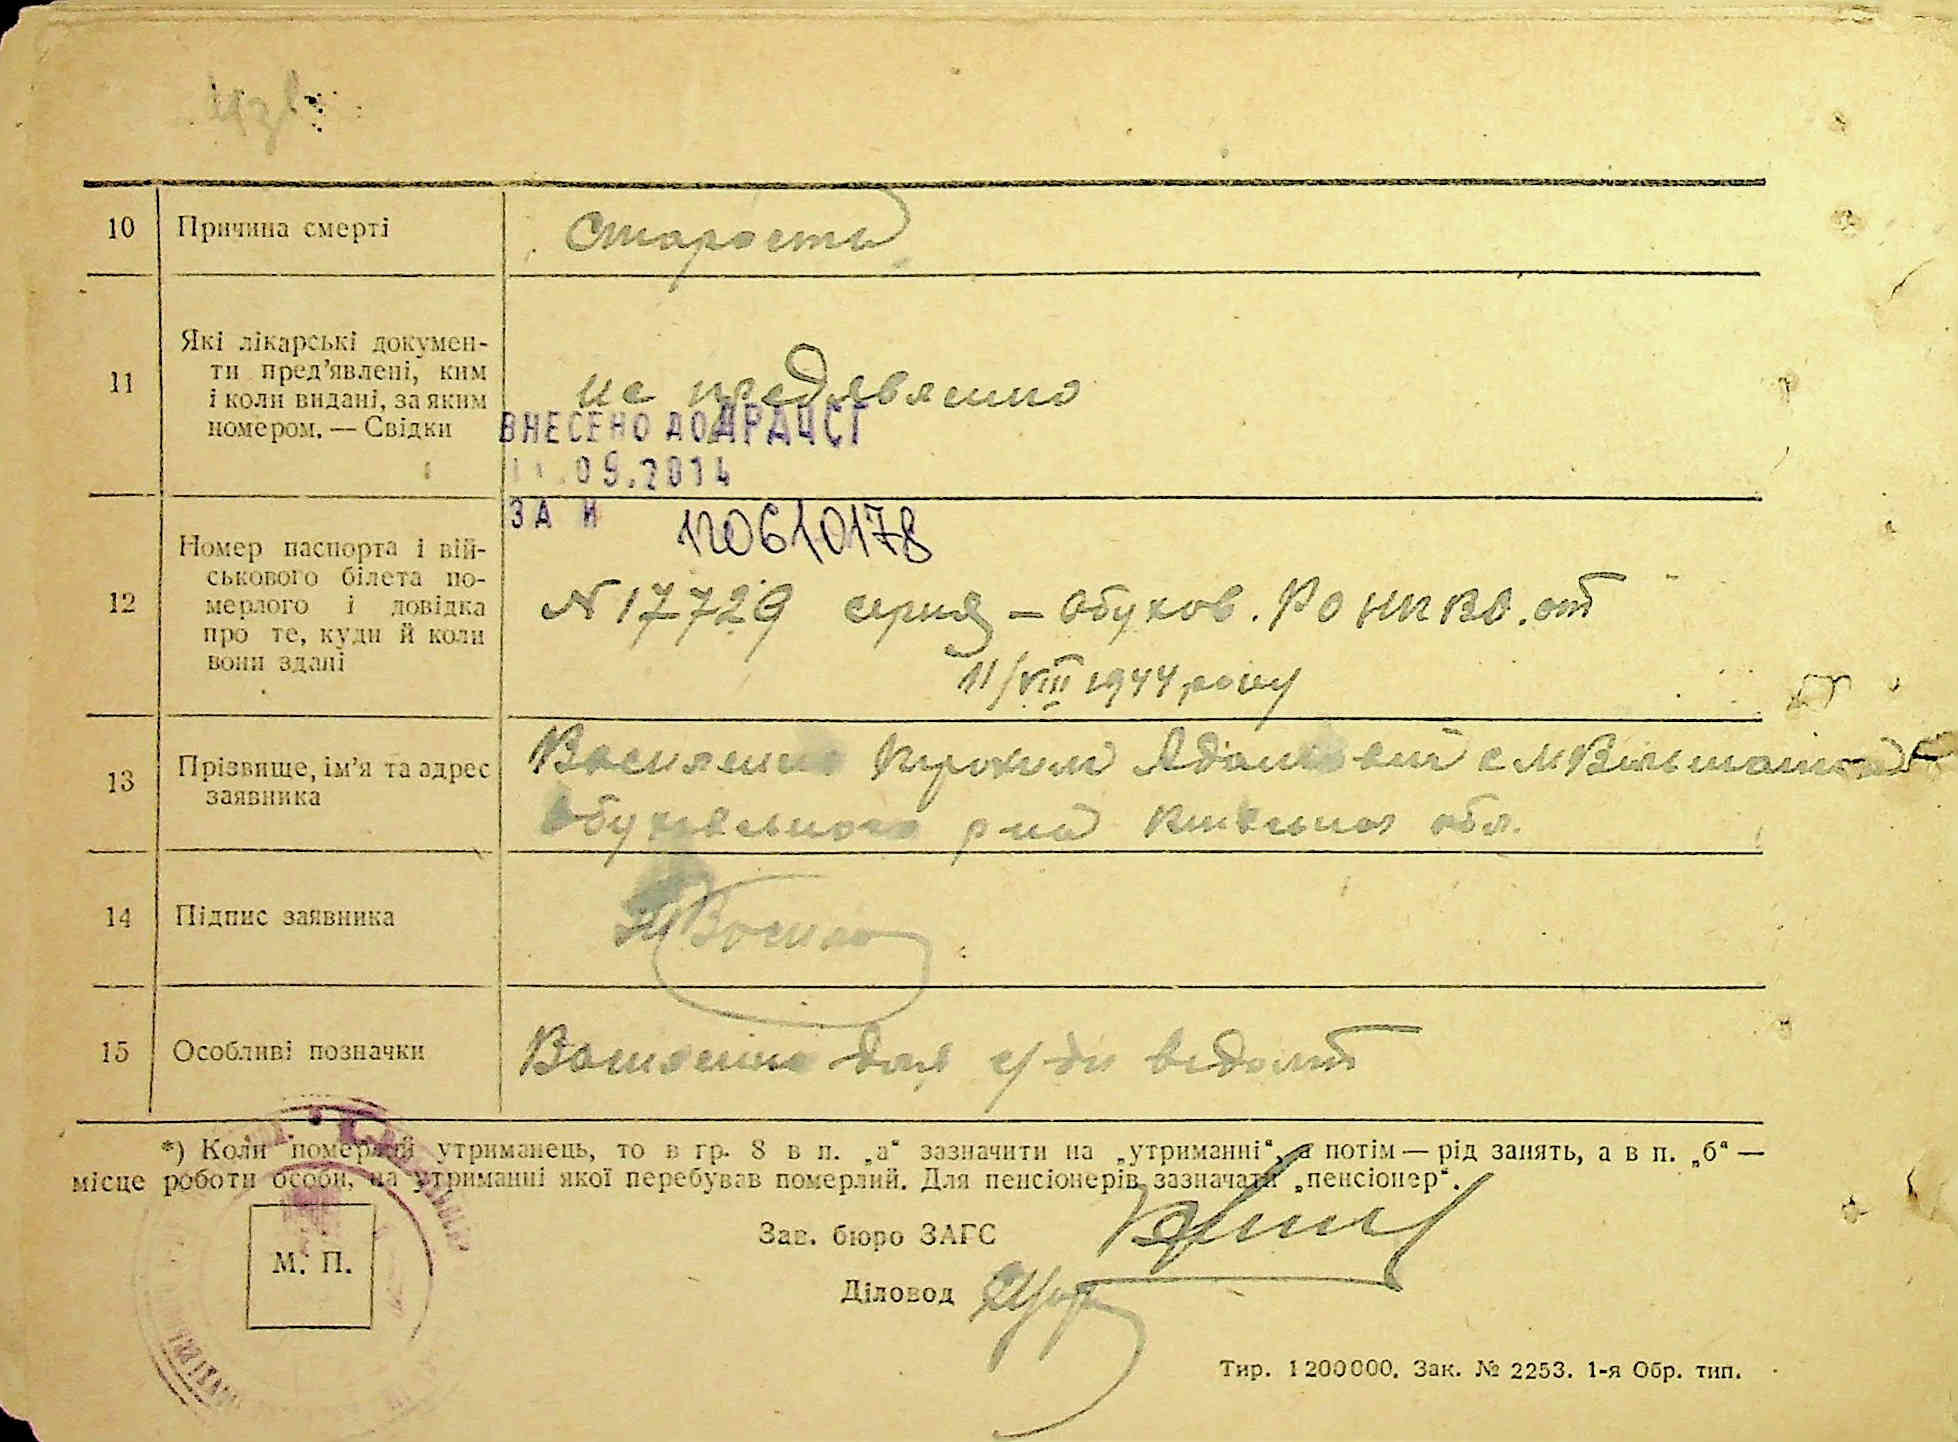 10 Причина смерті Старость
11 Які лікарські докумен-
ти пред’явлені, ким
і коли видані, за яким
номером. — Свідки
не предявлено
ВНЕСЕНО ДО ДРАЦСГ
.09.2014
ЗА №
120610178
12 Номер паспорта і вій-
ськового білета по-
мерлого і довідка
про те, куди й коли
вони здані
N 17729 серия — Обухов. РО НКВД. от
11/VIII 1944 року
13 Прізвище, ім’я та адрес
заявника
Василенко
Обуховського р-на Київської обл.
14 Підпис заявника
15 Особливі позначки
*) Коли померлий утриманець, то в гр. 8 в п. „а“ зазначити на „утриманні“, а потім — рід занять, а в п. „б“ —
місце роботи особи, на утриманні якої перебував померлий. Для пенсіонерів зазначати „пенсіонер“.
М. П.
Зав. бюро ЗАГС
Діловод
Тир. 1200000. Зак. № 2253. 1-я Обр. тип.